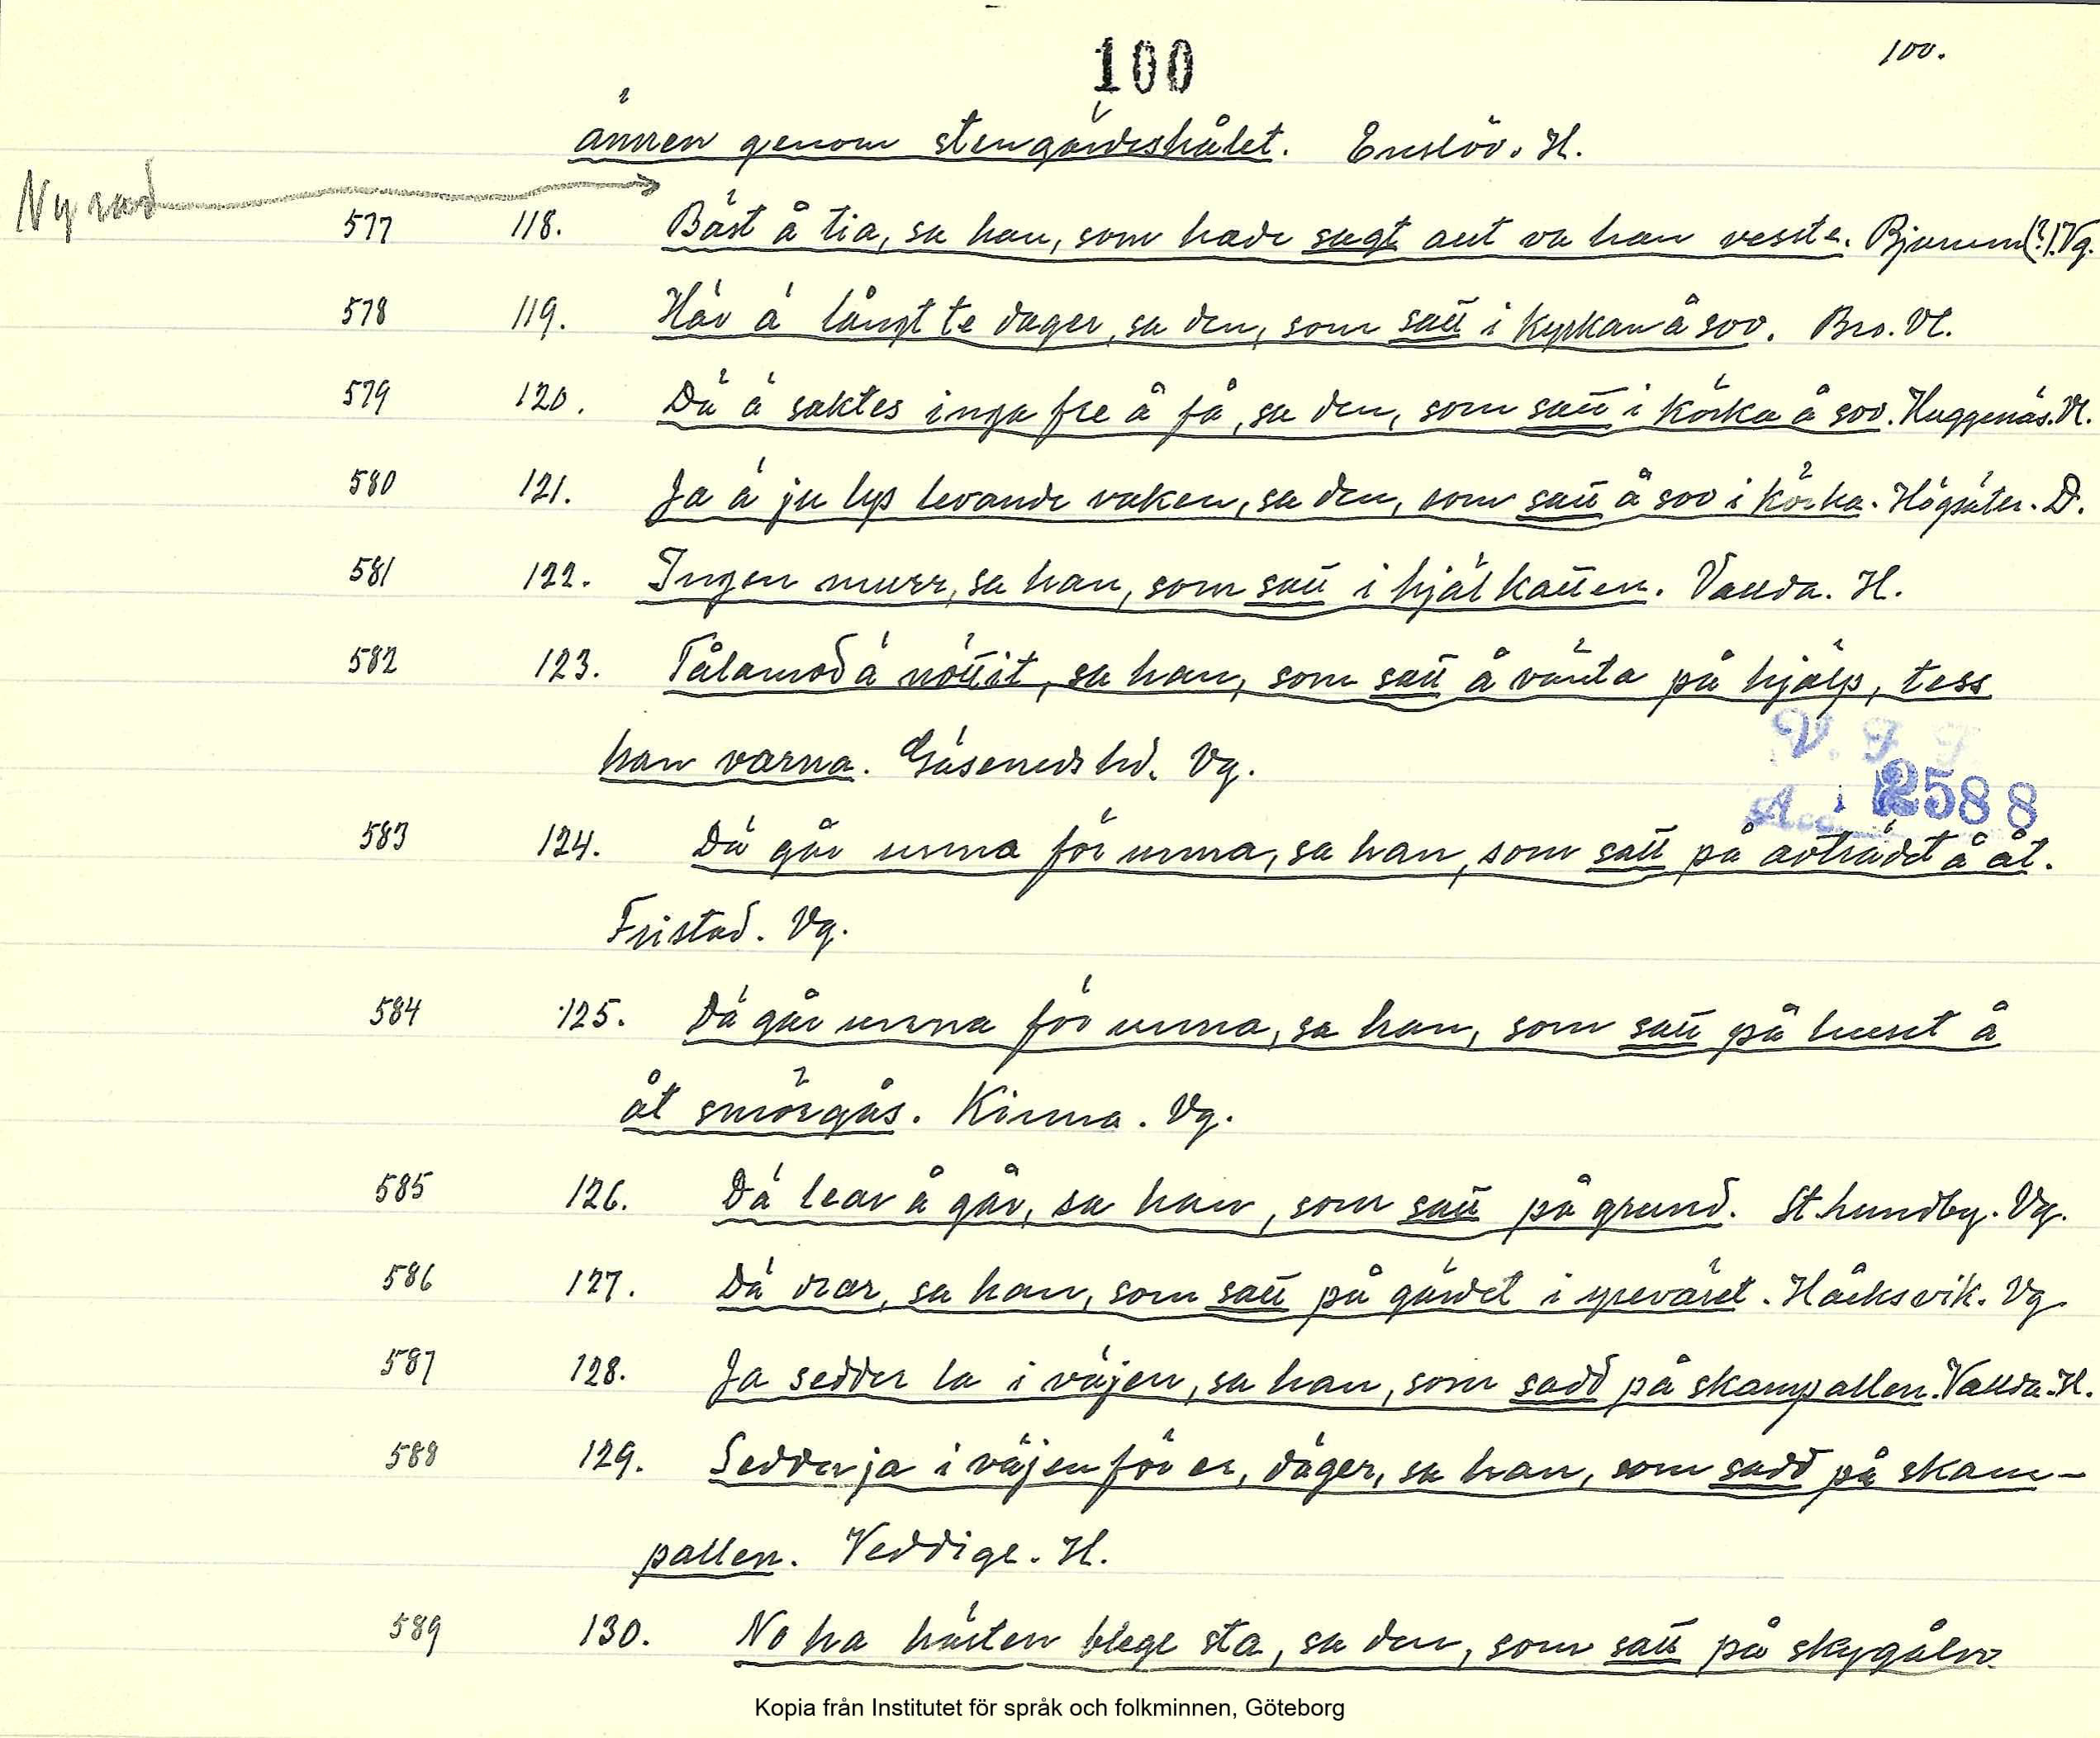 100
100.
ännen genom stengärdeshålet. Enslöv. H.
Ny rad
577 118. Bäst å tia, sa han, som hade sagt aut va han vesste. Bjurum(?).Vg.
578 119. Här ä långt te dager, sa den, som satt i kyrkan å sov. Bro. Vl.
579 120. Dä ä saktes inga fre å få, sa den, som satt i körka å sov. Huggenäs. Vl.
580 121. Ja ä ju lys levande vaken, sa den, som satt å sov i körka. Högsäter. D.
581 122. Ingen murr, sa han, som satt i hjälkatten. Vallda. H.
582 123. Tålamod ä nöttit, sa han, som satt å vänta på hjälp, tess
han varna. Gäseneds hd. Vg.
V. F. T.
Acc. 2588
583 124. Dä går unna för unna, sa han, som satt på avträdet å åt.
Fristad. Vg.
584 125. Dä går unna för unna, sa han, som satt på huset å
åt smörgås. Kinna. Vg.
585 126. Dä lear å går, sa han, som satt på grund. St. Lundby. Vg.
586 127. Dä drar, sa han, som satt på gärdet i yreväret. Håcksvik. Vg
587 128. Ja sedder la i väjen, sa han, som sadd på skampallen. Vallda. H.
588 129. Sedder ja i väjen för er, däger, sa han, som sadd på skam-
pallen. Veddige. H.
589 130. No ha hästen blege sta, sa den, som satt på skygålv
Kopia från Institutet för språk och folkminnen, Göteborg